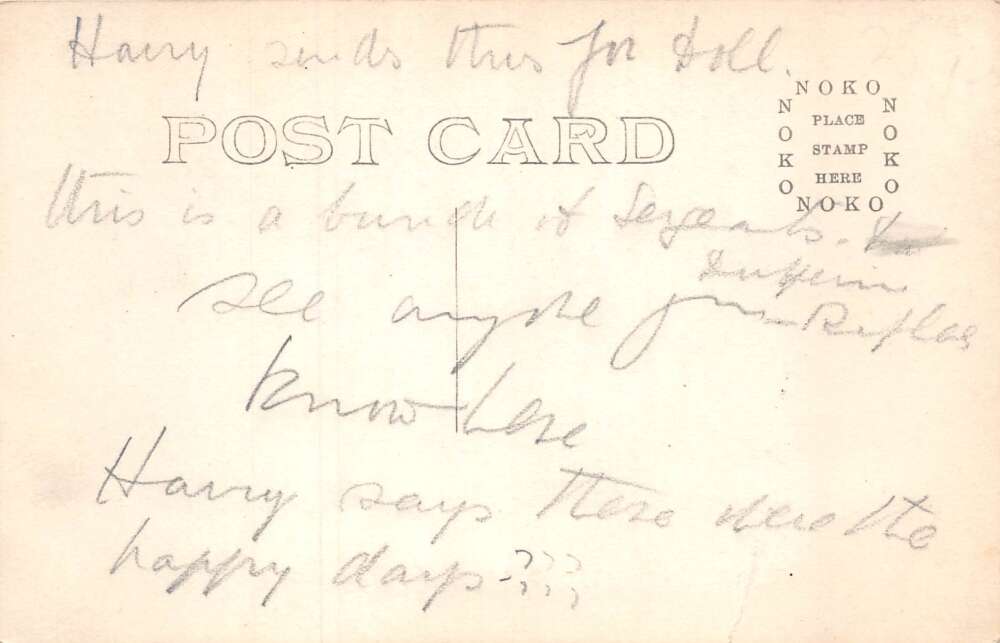 Harry sends this for Doll.
POST CARD
NOKO
NOKO
NOKO
NOKO
PLACE
STAMP
HERE
this is a bunch of Sergeants.
see anyone you
Rifles
know here
Harry says These were the
happy days - ???